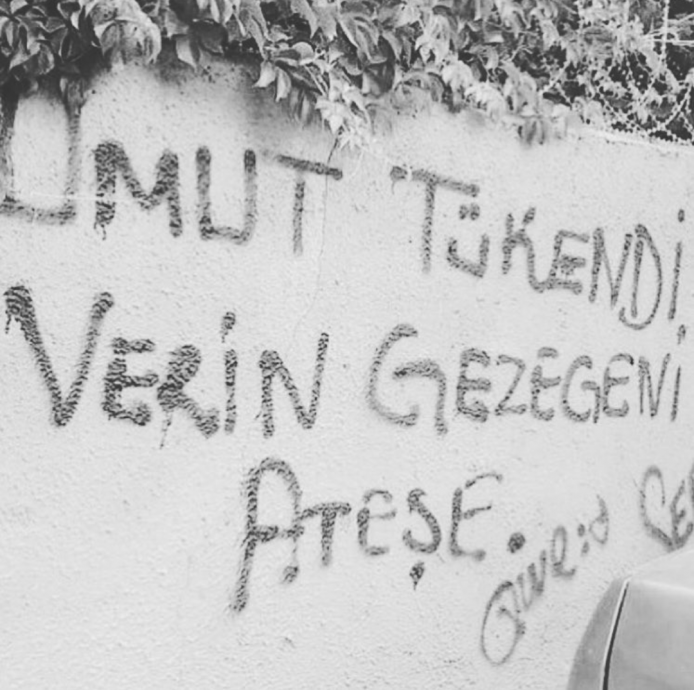 UMUT TÜKENDİ,
VERİN GEZEGENİ
ATEŞE.